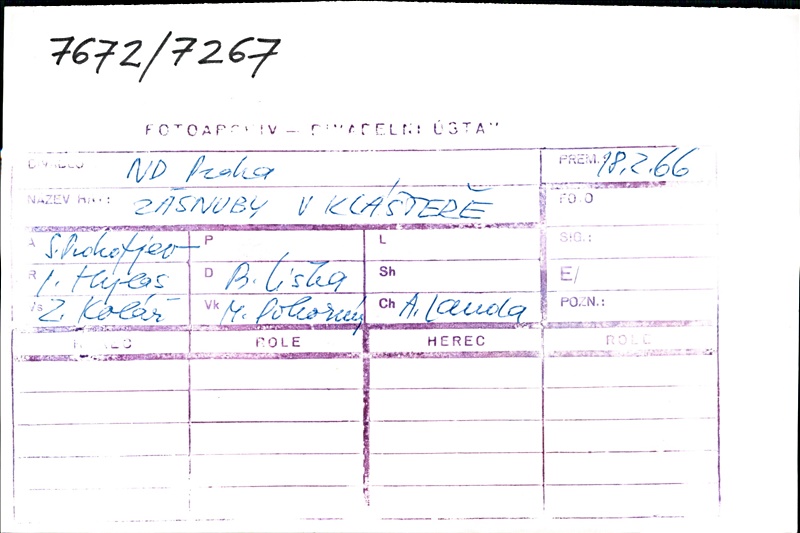 7672/7267
FOTOARCHIV – DIVADELNÍ ÚSTAV
DIVADLO ND Praha PREM. 18.2.66
NÁZEV HRY: ZÁSNUBY V KLÁŠTEŘE FOTO
A S. Prokofjev P L SIG.:
R I. Hylas D B. Liška Sh E/
Z. Kolář Vk M. Pokorný Ch A. Landa POZN.:
HEREC ROLE HEREC ROLE